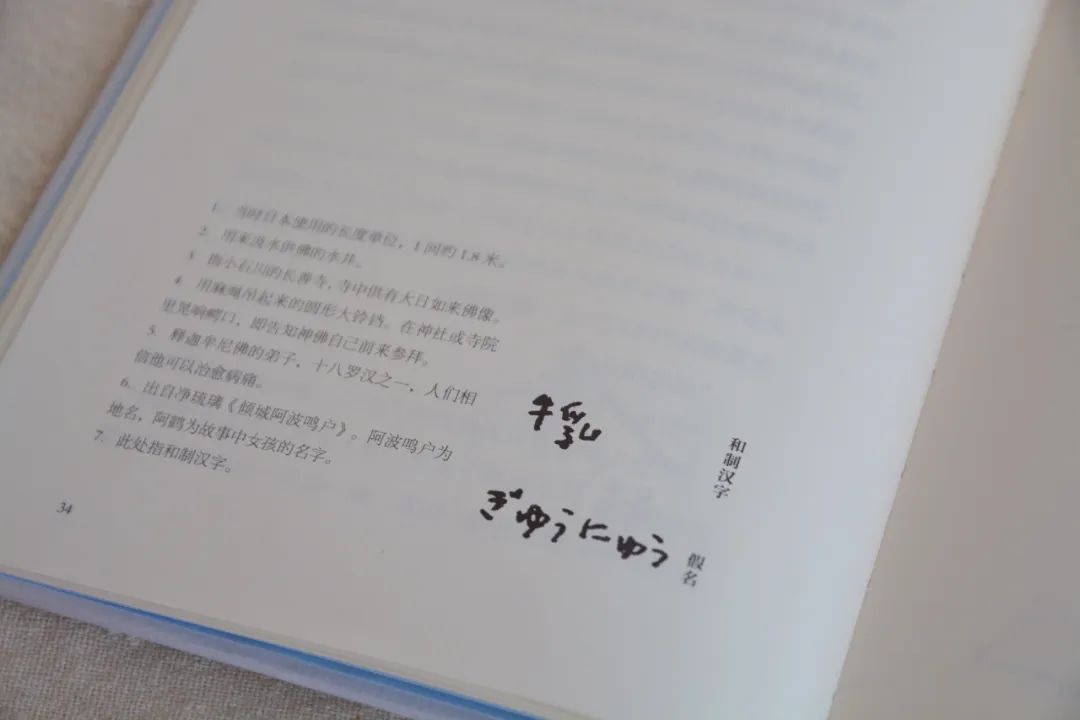 1. 当时日本使用的长度单位，1 间约 1.8 米。
2. 用来汲水供佛的水井。
3. 指小石川的长善寺，寺中供有大日如来佛像。
4. 用麻绳吊起来的圆形大铃铛。在神社或寺院
里晃响鳄口，即告知神佛自己前来参拜。
5. 释迦牟尼佛的弟子，十八罗汉之一，人们相
信他可以治愈病痛。
6. 出自净琉璃《倾城阿波鸣户》。阿波鸣户为
地名，阿鹤为故事中女孩的名字。
7. 此处指和制汉字。
34
牛乳
和制汉字
ぎゅうにゅう
假名